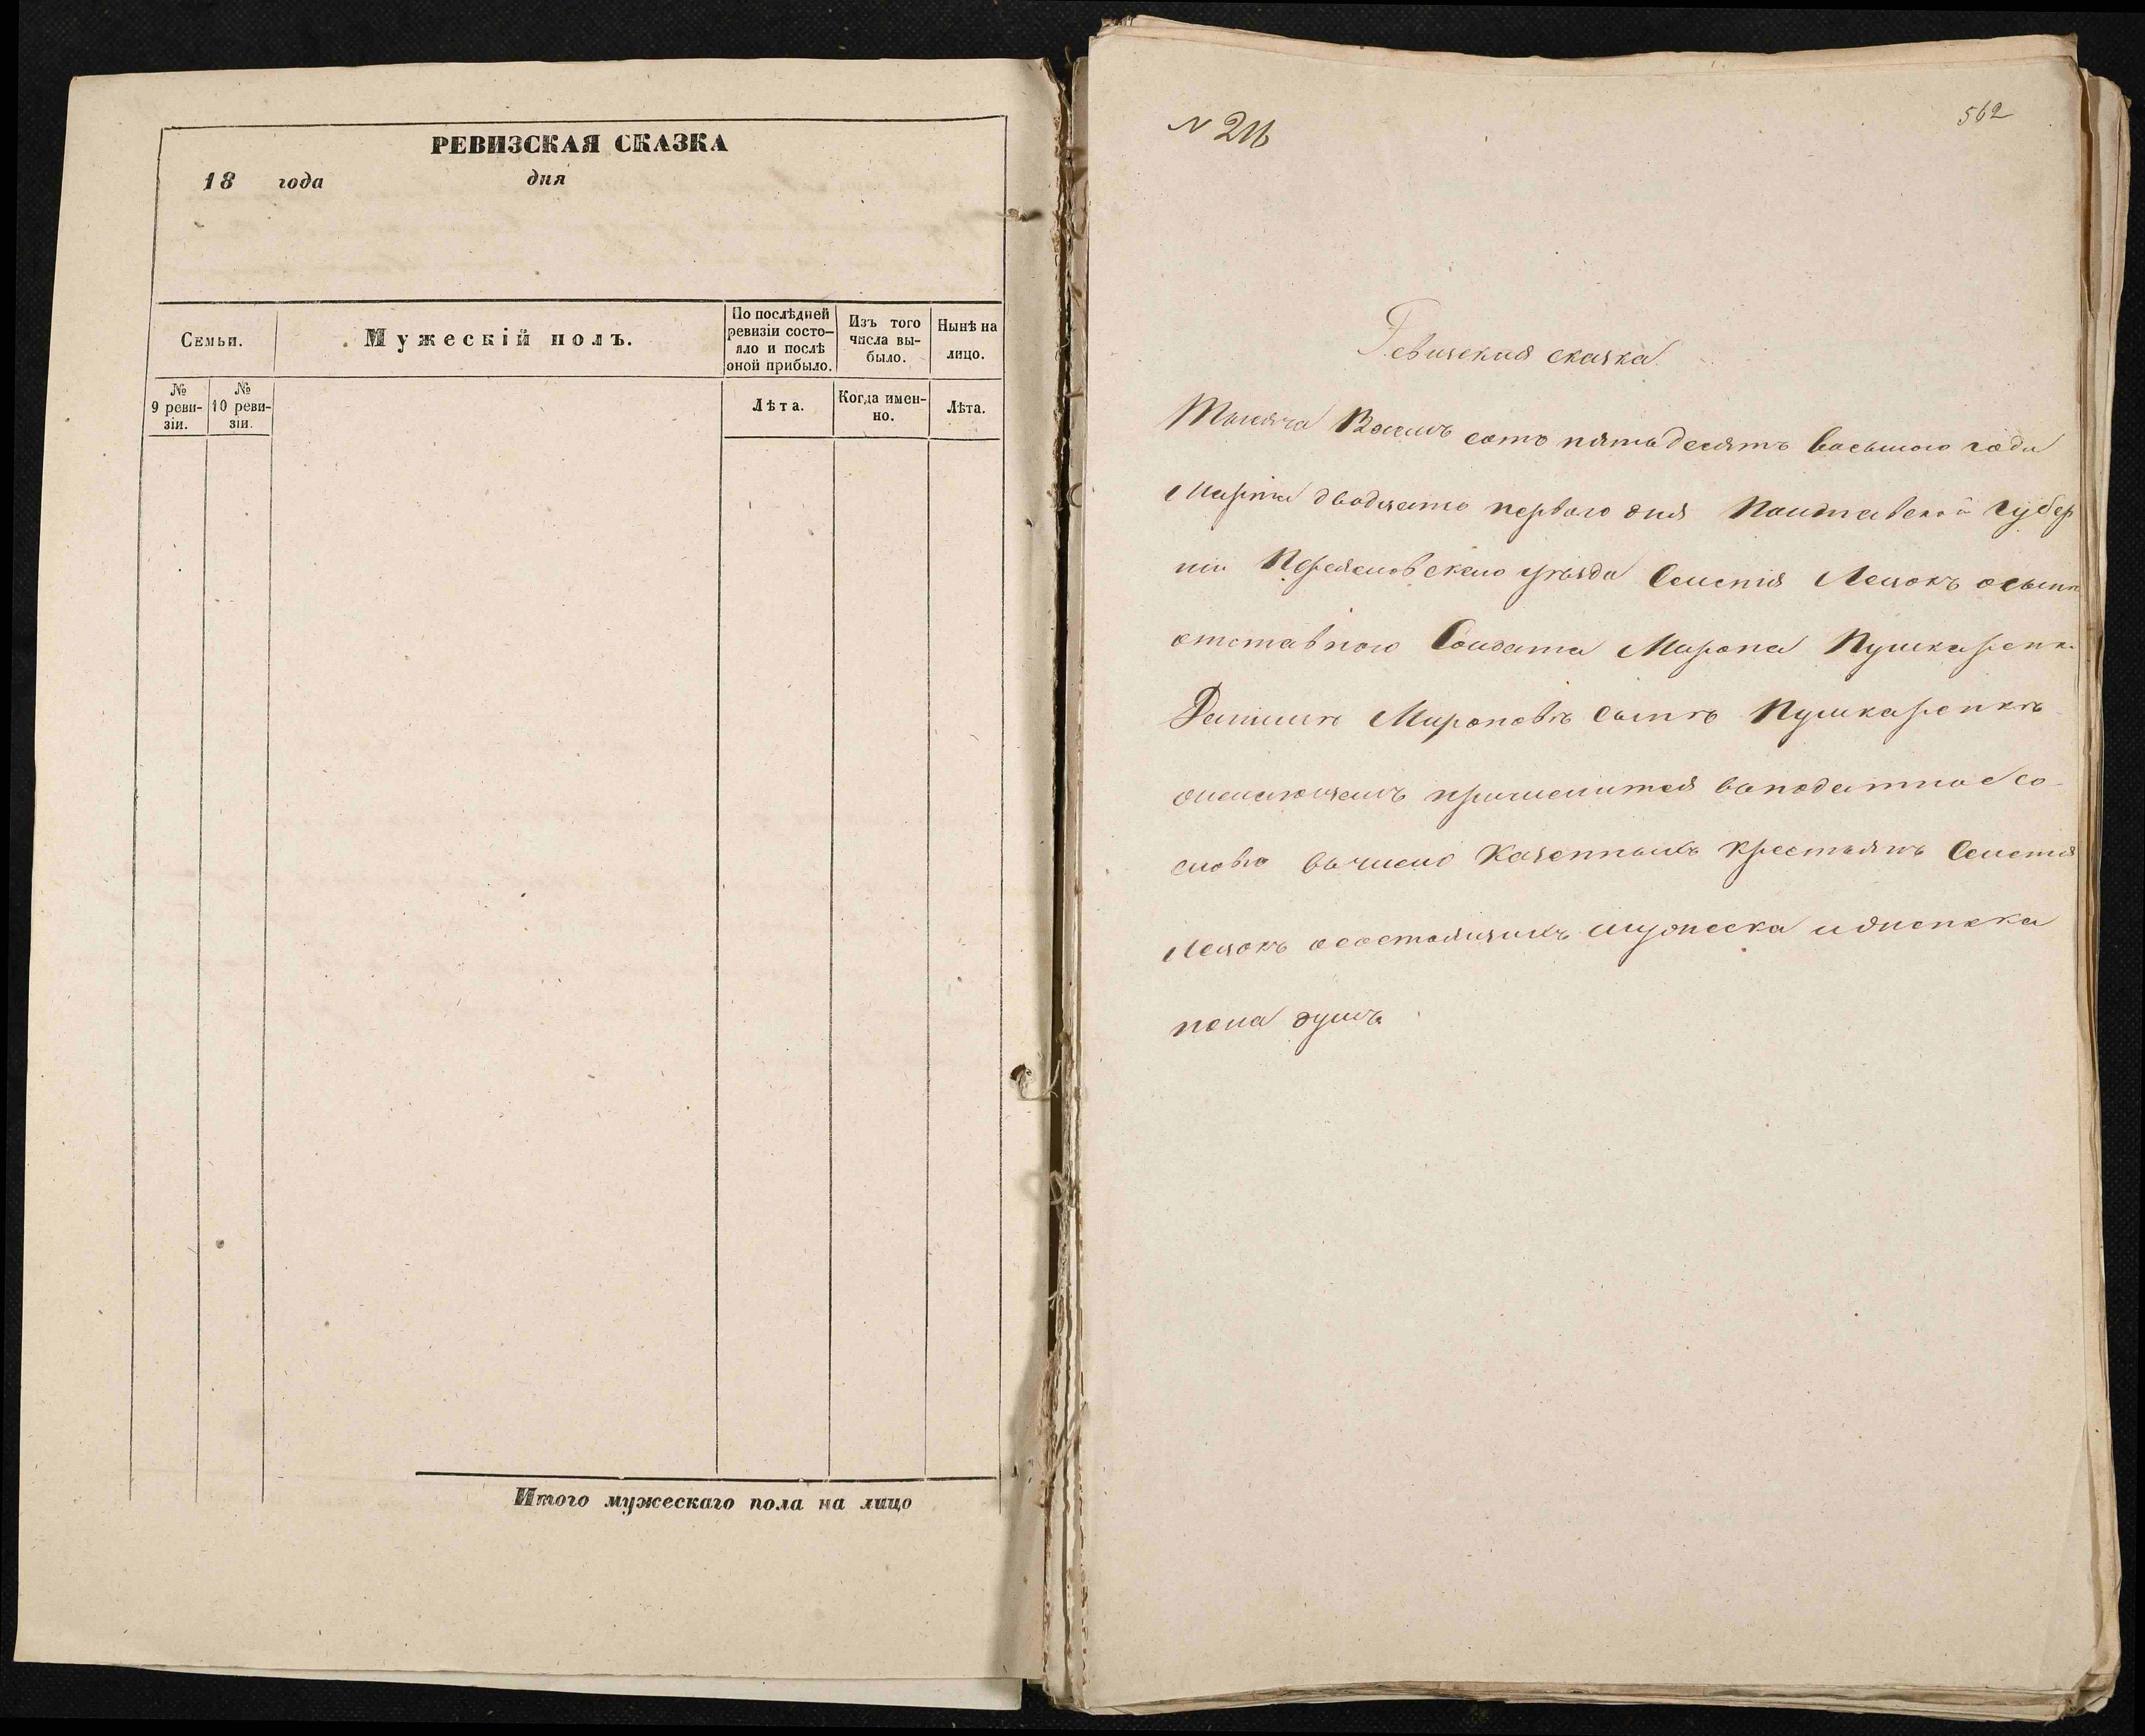 РЕВИЗСКАЯ СКАЗКА
18 года дня
Семьи.
Мужескій полъ.
По послѣдней
ревизіи состо-
яло и послѣ
оной прибыло.
Изъ того
числа вы-
было.
Нынѣ на
лицо.
№
9 реви-
зіи.
№
10 реви-
зіи.
Лѣта.
Когда имен-
но.
Лѣта.
Итого мужескаго пола на лицо
562
Ревизская сказка
Тысяча Восемъ сотъ пятьдесятъ восьмого года
Марта двадцать первого дня Полтавской губер
ніи уѣзда Селенія осынѣ
отставного Солдата Мирона Пушкаренка
Данилѣ Мироновѣ сынѣ Пушкаренкѣ
причислится воподатное со-
словіе вычисло Казенныхъ крестьянъ Селенія
осостоящихъ мужеска иженска
пола душъ